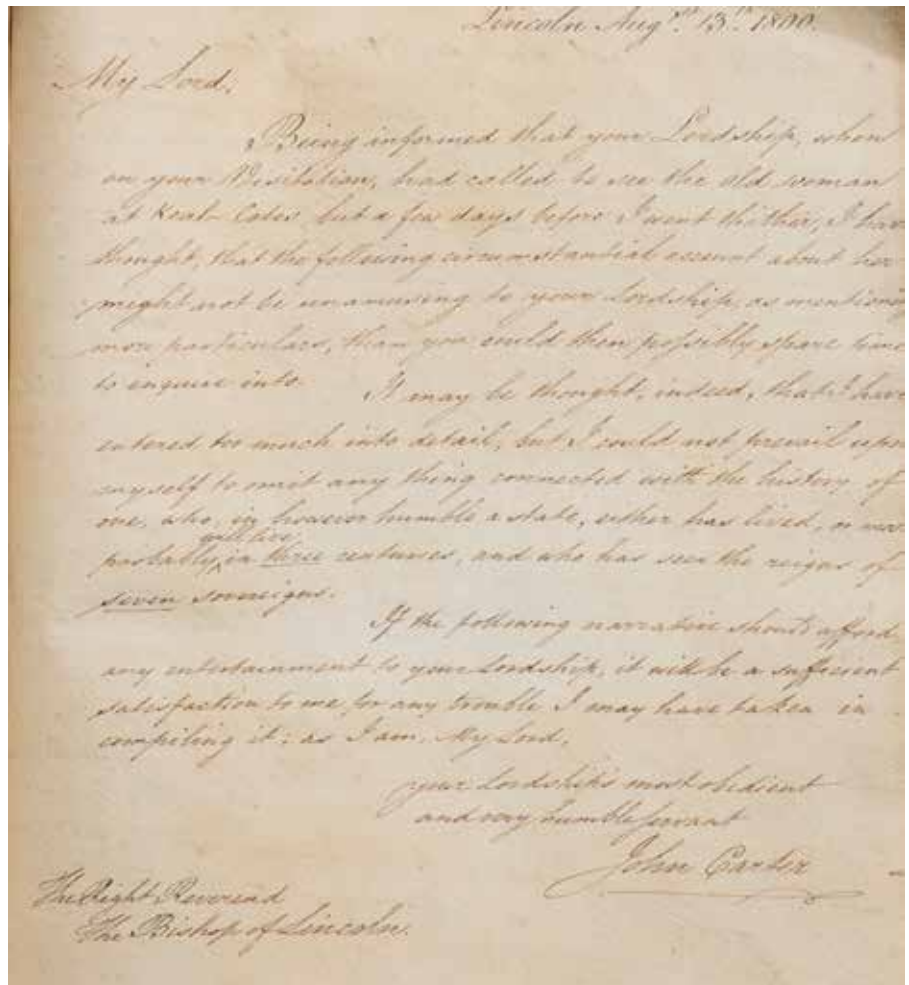 Lincoln Augst. 13th. 1800.
My Lord,
Being informed that your Lordship, when
on your Visitation, had called to see the old woman
at Keal-Cotes, but a few days before I went thither, I have
thought, that the following circumstantial account about her
might not be unamusing to your Lordship, as mentioning
more particulars, than you could then possibly spare time
to inquire into. It may be thought, indeed, that I have
entered too much into detail, but I could not prevail upon
myself to omit any thing connected with the history of
one, who, in however humble a state, either has lived, or most
probably will live in three centuries, and who has seen the reigns of
seven sovereigns.
If the following narrative should afford
any entertainment to your Lordship, it will be a sufficient
satisfaction to me for any trouble I may have taken in
compiling it: as I am, My Lord,
your Lordship's most obedient
and very humble servant
John Carter
The Right Reverend
The Bishop of Lincoln.